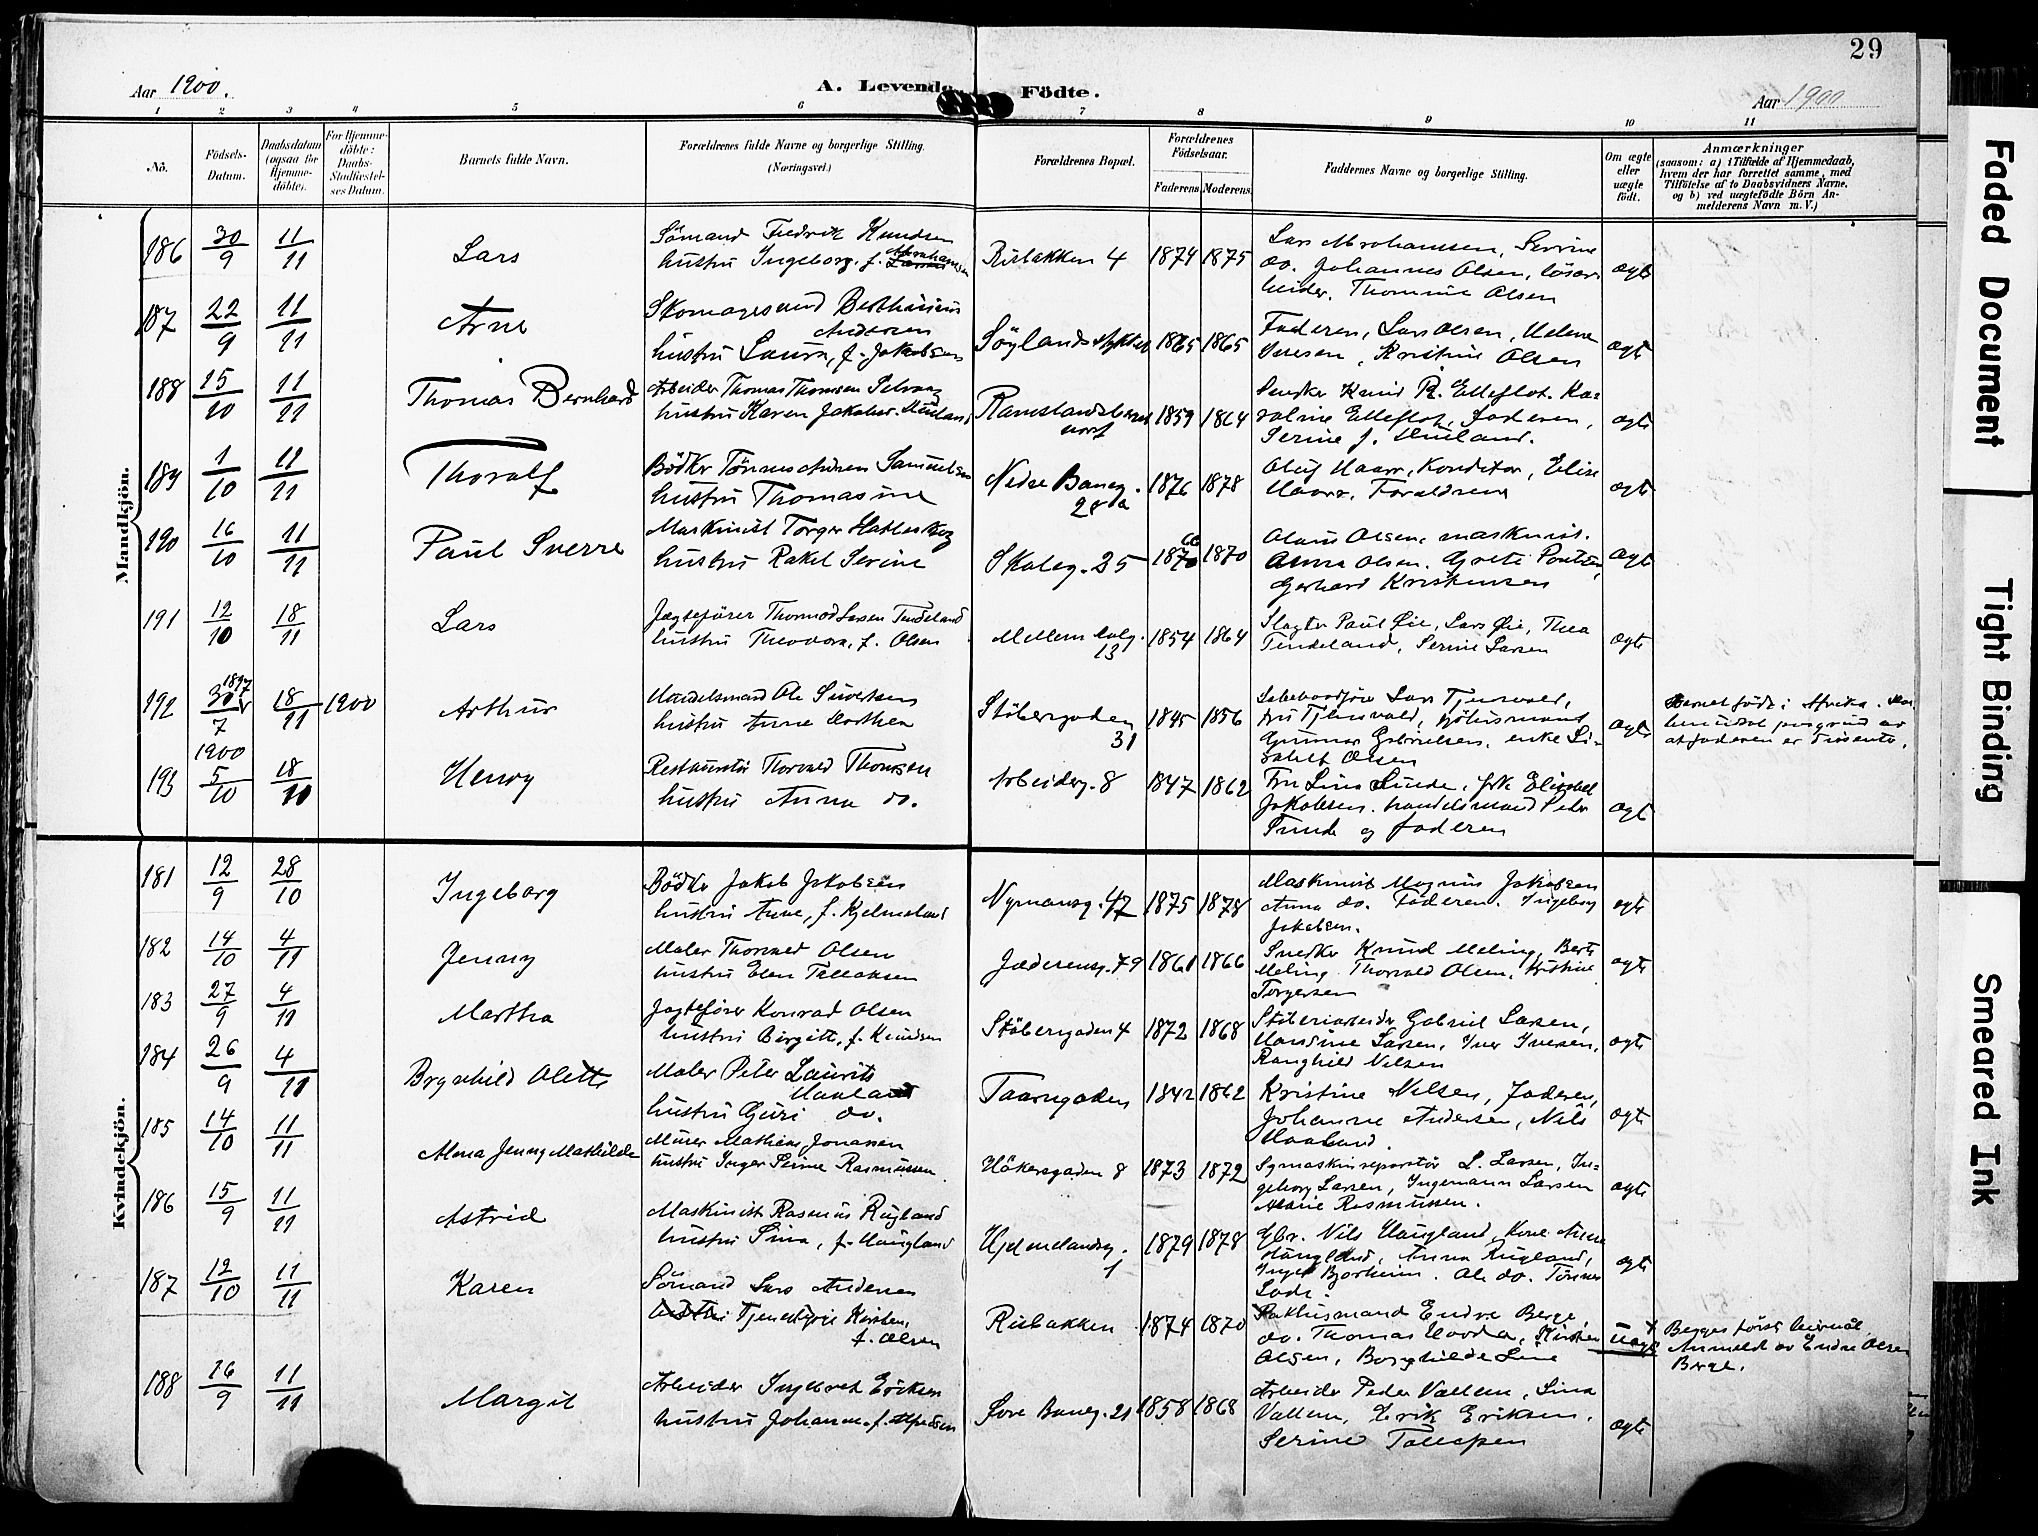 29
Aar 1900.
A. Levende Födte.
Aar 1900
1 2 3 4 5 6 7 8 9 10 11
No.
Födsels-Datum.
Daabsdatum (ogsaa för Hjemme-döbte).
For Hjemme-döbte: Daabs-Stadfæstel-ses Datum.
Barnets fulde Navn.
Forældrenes fulde Navne og borgerlige Stilling. (Næringsvei.)
Forældrenes Bopæl.
Forældrenes Födselsaar.
Faderens. Moderens.
Faddernes Navne og borgerlige Stilling.
Om ægte eller uægte födt.
Anmærkninger
(saasom: a) i Tilfælde af Hjemmedaab,
hvem der har forrettet samme, med
Tilföielse af to Daabsvidners Navne,
og b) ved uægtefödte Börn An-
melderens Navn m. V.)
Mandkjön.
186 30/9 11/11 Lars
Sömand Fredrik Knudsen
hustru Ingeborg, f. Abrahamsen
Risbakken 4 1874 1875
Lars Abrahamsen, Serine
do. Johannes Olsen, lösar-
beider. Thomine Olsen
ægte
187 22/9 11/11 Arne
Skomagersvend Berthinius
Andersen
hustru Laura, f. Jakobsen
Söylandsstykket 1865 1865
Faderen, Lars Olsen, Helene
Iversen, Kristine Olsen
ægte
188 15/10 11/11 Thomas Bernhard
Arbeider Thomas Thomsen Selvaag
hustru Karen Jakobse
1859 1864
Snedker Knud R. Elleflot. Ka-
roline Elleflot, Faderen,
Serine f.
ægte
189 1/10 11/11 Thoralf
Bödker Tönnes Andreas Samuelsen
hustru Thomasine
Nedre Baneg. 28a 1876 1878
Oluf Haarr, Konditor, Elise
Haarr. Forældrene
ægte
190 16/10 11/11 Paul Sverre
Maskinist Torger
hustru Rakel Serine
Skoleg. 25 1870 1870
Olaus Olsen, maskinist.
Anna Olsen. Grete Poulsen,
Gerhard Kristensen
ægte
191 12/10 18/11 Lars
Jægtefører Thormod Larsen Tendeland
hustru Theodora, f. Olsen
13 1854 1864
Slagter Paul Øie, Lars Øie, Thea
Tendeland, Serine Larsen
ægte
192 1897 30/7 18/11 1900 Arthur
Handelsmand Ole Sivertsen
hustru Anne Dorthea
Stöbergaden 31 1845 1856
Lars Tjensvold,
fru Tjensvold, kjöbmand
Gunnar Gabrielsen, enke Li-
sabet Olsen
ægte
Barnet födt i Afrika.
paagrund av
at faderen er Dissenter.
193 1900 5/10 18/10 Henry
Thorvald Thomsen
hustru Anna do.
Arbeiderg. 8 1847 1862
Fru Lina Lunde, frk Elisabet
Jakobsen. handelsmand Peder
Lunde og faderen
ægt
Kvindekjön.
181 12/9 28/10 Ingeborg
Bödker Jakob Jakobsen
hustru Anne, f. Hjelmeland
Nymansg. 47 1875 1878
Maskinist Magnus Jakobsen
Anna do. Faderen. Ingeborg
Jakobsen.
ægte
182 14/10 4/11 Jenny
Maler Thorvald Olsen
hustru Elen Tellaksen
Jæderensg. 79 1861 1866
Snedker Knud Meling, Berte
Meling. Thorvald Olsen, Kristine
Torgersen
ægte
183 27/9 4/11 Martha
Jægtefører Konrad Olsen
hustru Birgitte, f. Knudsen
Stöbergaden 4 1872 1868
Gabriel Larsen,
Hansine Larsen, Iver Iversen,
Ranghild Nilsen
ægte
184 26/9 4/11 Brynhild Olette
Maler Peter Laurits
Maaland
hustru Guri do.
Taarngaden 1842 1862
Kristine Nilsen, Faderen,
Johanne Andersen, Nils
Maaland.
ægte
185 14/10 11/11 Alma Jenny Mathilde
Murer Mathias Jonassen
hustru Inger Serine Rasmussen
Hökergaden 8 1873 1872
Symaskinreparatör L. Larsen, In-
geborg Larsen, Ingemann Larsen
Marie Rasmussen.
ægte
186 15/9 11/11 Astrid
Maskinist Rasmus Rugland
hustru Sina, f. Haugland
Hjelmelandsg. 1 1879 1878
Gbr. Nils Haugland, Kone Anne
Haugland, Anna Rugland,
Inger Bjorheim. Ole do. Tönnes
Lode.
ægte
187 12/10 11/11 Karen
Sömand Lars Andersen
hustru Tjenestepige Kirsten,
f. Olsen
Risbakken 1874 1870
Pakhusmand Endre Berge,
do. Thomas Hovda, Kirsten
Olsen, Borghilde Lene
Uægte
Begges förste leiermaal
Anmeldt av Endre Olsen
Berge.
188 16/9 11/11 Margit
Arbeider Ingebret Eriksen
hustru Johanne, f. Alfredsen
Övre Baneg. 21 1858 1868
Arbeider Peder Vallem, Lina
Vallem, Erik Eriksen,
Serine Tollefsen
ægte
Faded Document
Tight Binding
Smeared Ink